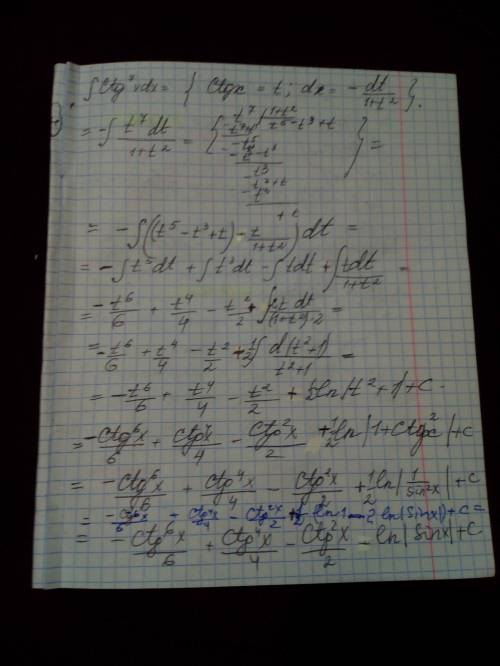 ∫Ctg⁷xdx = { Ctgx = t; dx = -dt/(1+t²) }.
= -∫ t⁷dt/(1+t²) = { t⁷ | 1+t² t⁵-t³+t } =
= -∫((t⁵-t³+t) - t/(1+t²))dt =
= -∫t⁵dt + ∫t³dt - ∫tdt + ∫tdt/(1+t²) =
= -t⁶/6 + t⁴/4 - t²/2 + ∫2t dt/((1+t²)·2) =
= -t⁶/6 + t⁴/4 - t²/2 + 1/2∫d(t²+1)/(t²+1) =
= -t⁶/6 + t⁴/4 - t²/2 + 1/2ln|t²+1|+C.
= -Ctg⁶x/6 + Ctg⁴x/4 - Ctg²x/2 + 1/2 ln|1+Ctg²x|+C
= -Ctg⁶x/6 + Ctg⁴x/4 - Ctg²x/2 + 1/2 ln|1/sin²x|+C
= -Ctg⁶x/6 - Ctg⁴x/4 - Ctg²x/2 + 1/2(ln1-2ln|sinx|)+C =
= -Ctg⁶x/6 + Ctg⁴x/4 - Ctg²x/2 - ln|sinx|+C